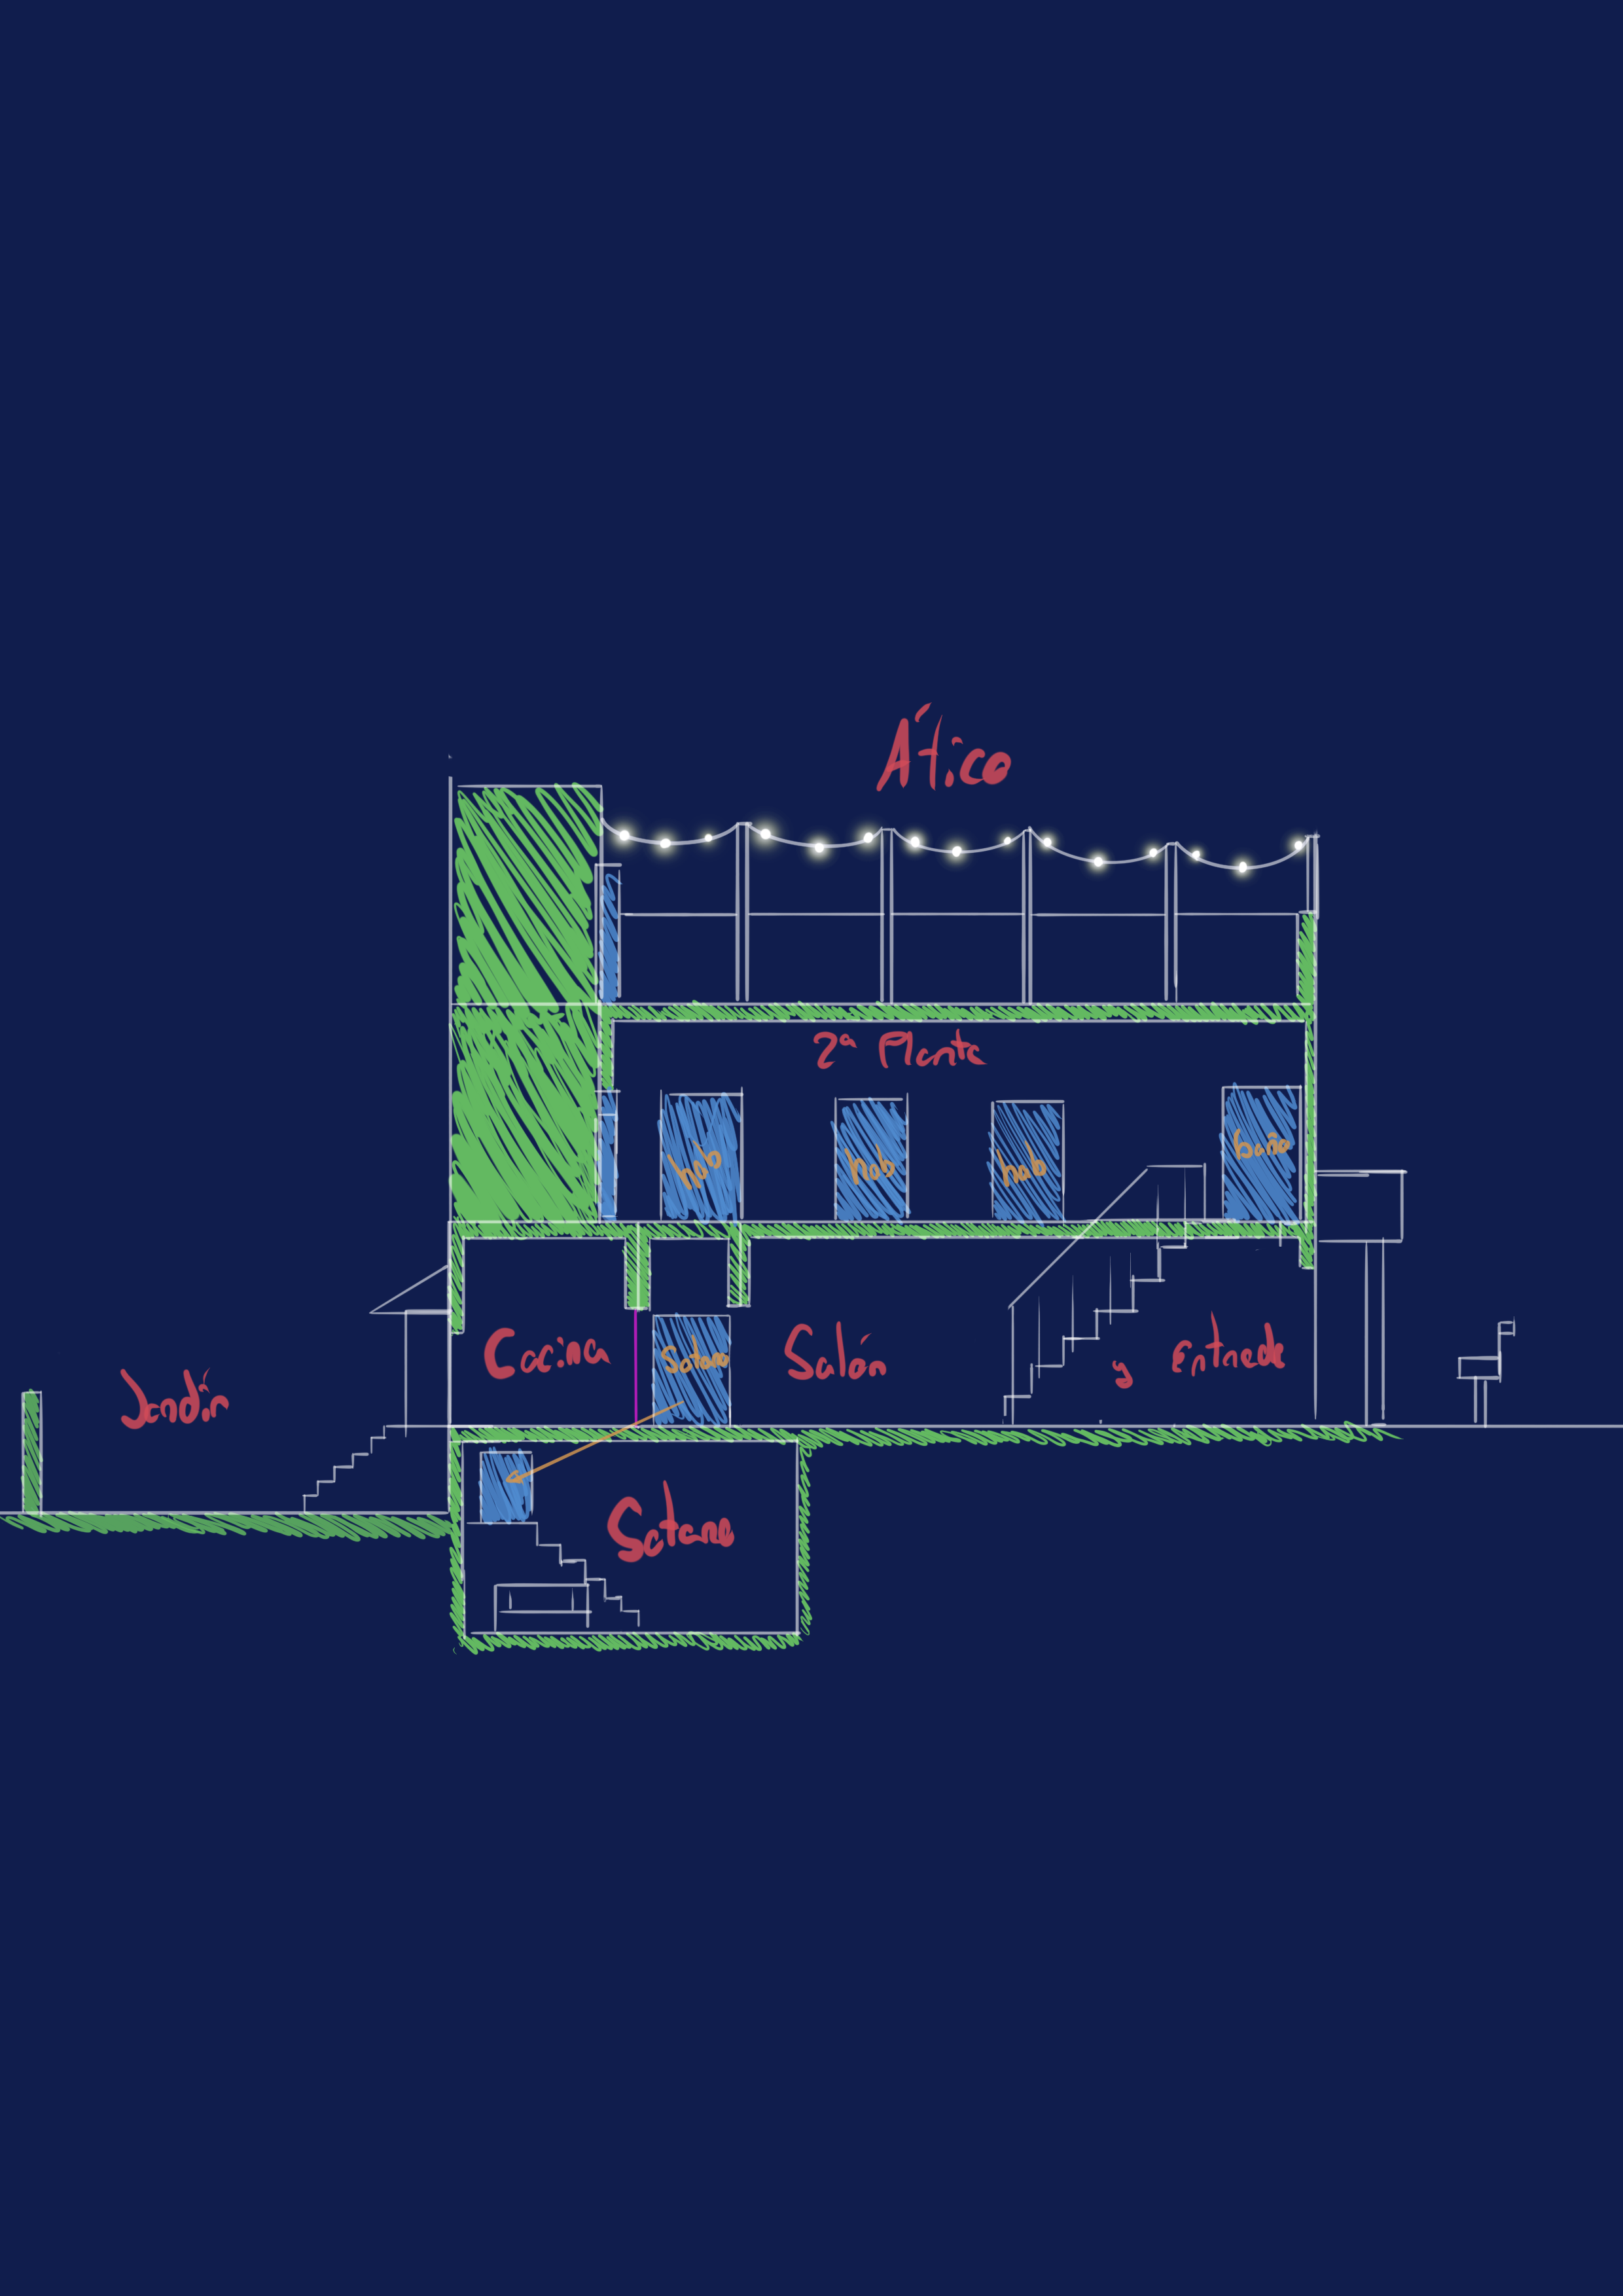 Ático
2ª Planta
hab hab hab baño
Cocina Sotano Salón y Entrada
Jardín
Sotano